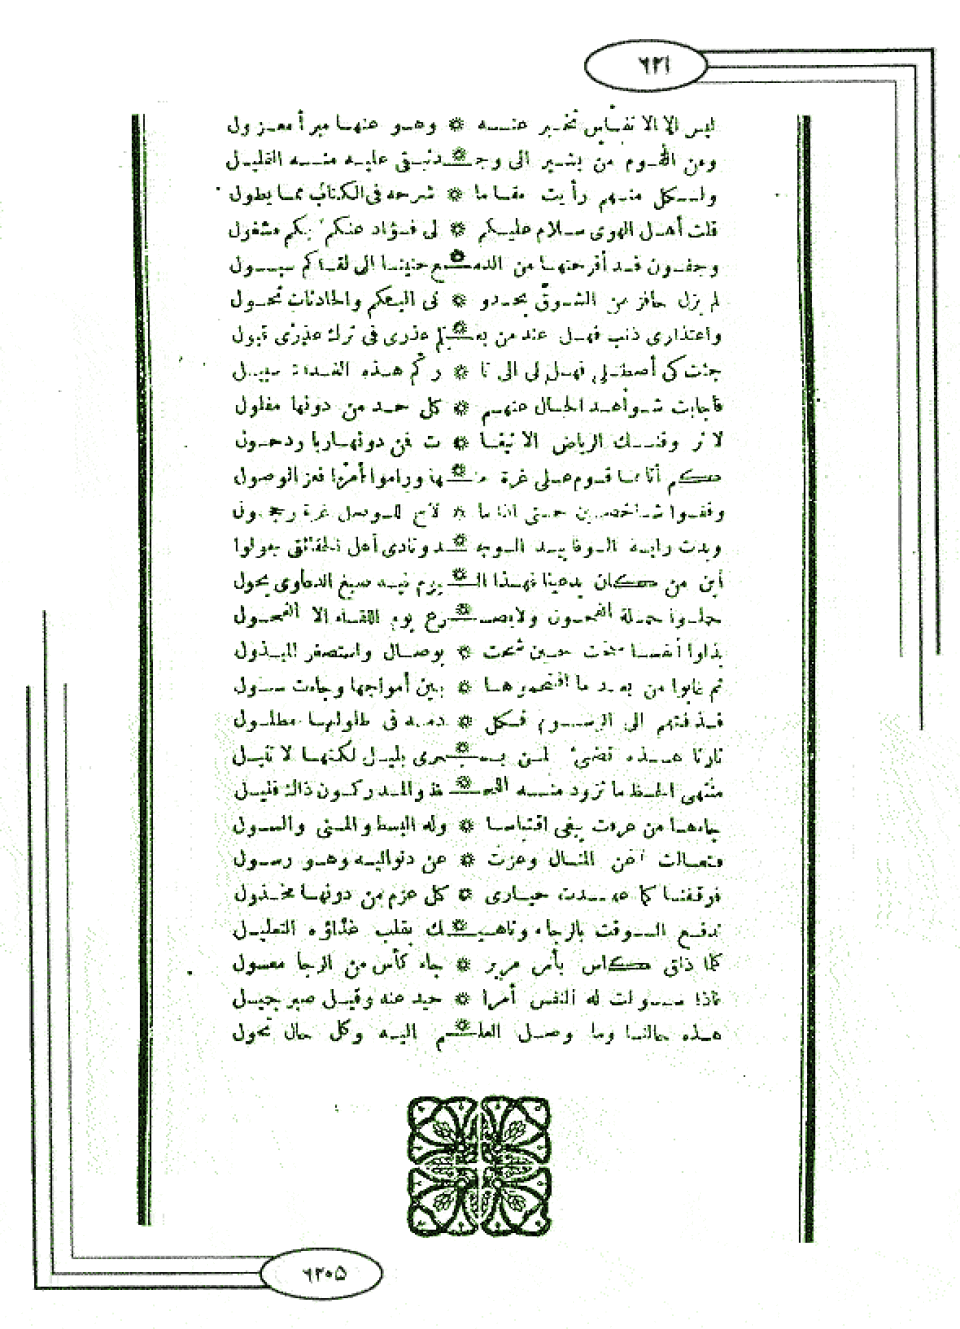 ٦٢١
ليس الا الانفاس تخبر عنه ❊ وهو عنها مبرأ معزول
ومن القوم من يشير الى وجـ❊ـد تبقى عليه منه القليل
ولكل منهم رأيت مقاما ❊ شرحه فى الكتاب مما يطول
قلت أهل الهوى سلام عليكم ❊ لى فؤاد عنكم بكم مشغول
وجفون قد أقرحتها من الدمـ❊ـع حنينا الى لقاكم سيول
لم يزل حافز من الشوق يحدو ❊ نى اليكم والحادثات تحول
واعتذارى ذنب فهل عند من يعـ❊ـلم عذرى فى ترك عذرى قبول
جئت كى أصطلى فهل لى الى نا ❊ ركم هذه الغداة سبيل
فأجابت شواهد الحال عنهم ❊ كل حد من دونها مفلول
لا تر وقنك الرياض الانيقا ❊ ت فمن دونها ربا ودحول
كم أتاها قوم على غرة منـ❊ـها وراموا أمرا فعز الوصول
وقفوا شاخصين حتى اذا ما ❊ لاح للوصل غرة وحجول
وبدت راية الوفا بيد الوجـ❊ـد ونادى أهل الحقائق جولوا
أين من كان يدعينا فهذا الـ❊ـيوم فيه صبغ الدعاوى يحول
حملوا حملة الفحول ولا يصـ❊ـرع يوم اللقاء الا الفحول
بذلوا أنفسا سخت حين شحت ❊ بوصال واستصغر المبذول
ثم غابوا من بعد ما اقتحموها ❊ بين أمواجها وجاءت سيول
قذفتهم الى الرسوم فكل ❊ دمه فى طلولها مطلول
نارنا هذه تضىء لمن يسـ❊ـرى بليل لكنها لا تنيل
منتهى الحظ ما تزود منه اللحـ❊ـظ والمدركون ذاك قليل
جاءها من عرفت يبغى اقتباسا ❊ وله البسط والمنى والسول
فتعالت عن المنال وعزت ❊ عن دنو اليه وهو رسول
فوقفنا كما عهدت حيارى ❊ كل عزم من دونها مخذول
ندفع الوقت بالرجاء وناهيـ❊ـك بقلب غذاؤه التعليل
كلما ذاق كاس يأس مرير ❊ جاء كأس من الرجا معسول
فاذا سولت له النفس أمرا ❊ حيد عنه وقيل صبر جميل
هذه حالنا وما وصل العلـ❊ـم اليه وكل حال تحول
٦٢٠٥